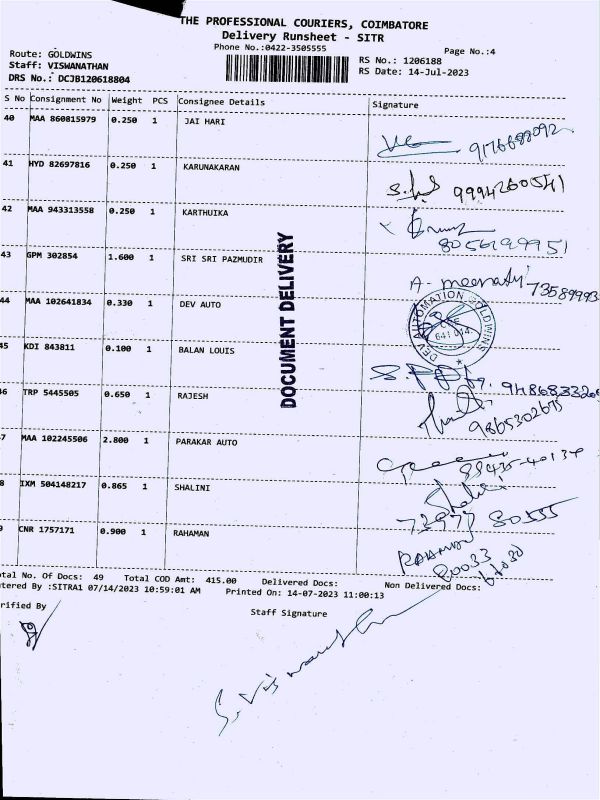 THE PROFESSIONAL COURIERS, COIMBATORE
Delivery Runsheet - SITR
Phone No.:0422-3505555
Page No.:4
Route: GOLDWINS
RS No.: 1206188
Staff: VISWANATHAN
RS Date: 14-Jul-2023
DRS No.: DCJB120618804
S No Consignment No Weight PCS Consignee Details Signature
40 MAA 860815979 0.250 1 JAI HARI
9176688092
41 HYD 82697816 0.250 1 KARUNAKARAN
9994260541
42 MAA 943313558 0.250 1 KARTHUIKA
8056199951
43 GPM 302854 1.600 1 SRI SRI PAZMUDIR
A- meenatchi 73589993
44 MAA 102641834 0.330 1 DEV AUTO
DEV AUTOMATION GOLDWINS
CBE
641 014
45 KDI 843811 0.100 1 BALAN LOUIS
46 TRP 5445505 0.650 1 RAJESH
9865302615
7 MAA 102245506 2.800 1 PARAKAR AUTO
88435-40134
8 IXM 504148217 0.865 1 SHALINI
Shalini
73977 80555
9 CNR 1757171 0.900 1 RAHAMAN
RAHAMAN
80033
DOCUMENT DELIVERY
otal No. Of Docs: 49 Total COD Amt: 415.00 Delivered Docs: Non Delivered Docs:
tered By :SITRA1 07/14/2023 10:59:01 AM Printed On: 14-07-2023 11:00:13
rified By
Staff Signature
S. Viswanathan